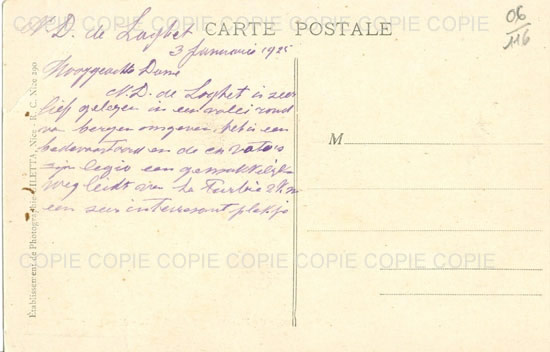 COPIE COPIE COPIE COPIE COPIE COPIE
N.D. de Laghet
CARTE POSTALE
06
116
3 Januarie 1925
Hooggeachte Dame
N.D. de Laghet is zeer
lief gelegen in een valei rond
van bergen omgeven, het is een
bedevaartoord en de ex voto's
zijn legio een gemakkelijke
weg leidt van La Turbie
een zeer interessant plekje
M
COPIE COPIE COPIE COPIE COPIE COPIE COPIE COPIE
Établissement de Photographie GILETTA, Nice - R. C. Nice 290